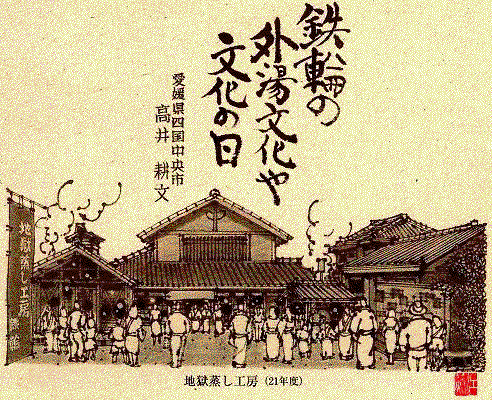 鉄輪の
外湯文化や
文化の日
愛媛県四国中央市
高井 耕文
地獄蒸し工房
地獄蒸し工房 (21年度)